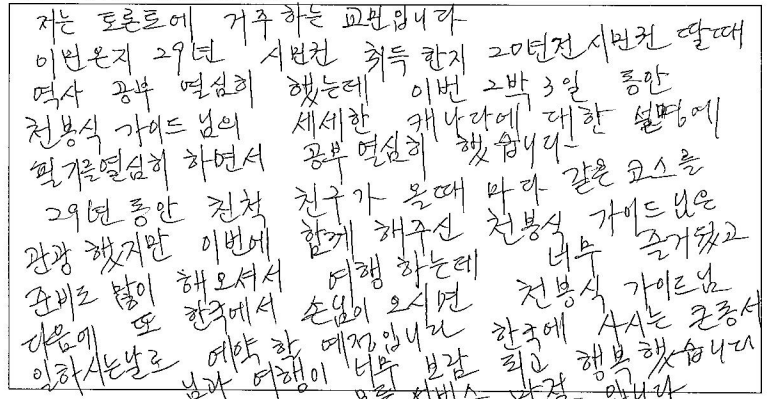 저는 토론토에 거주하는 교민입니다
이민온지 29년 시민권 취득한지 20년전 시민권 딸때
역사 공부 열심히 했는데 이번 2박 3일 동안
천봉식 가이드님의 세세한 캐나다에 대한 설명에
필기를열심히 하면서 공부 열심히 했습니다
29년 동안 친척 친구가 올때 마다 같은 코스를
관광 했지만 이번에 함께 해주신 천봉식 가이드님은
준비도 많이 해오셔서 여행 하는데 너무 즐거웠고
다음에 또 한국에서 손님이 오시면 천봉식 가이드님
일하시는날로 예약 할 예정입니다 한국에 사시는 큰동서
님과 여행이 너무 보람 되고 행복했습니다